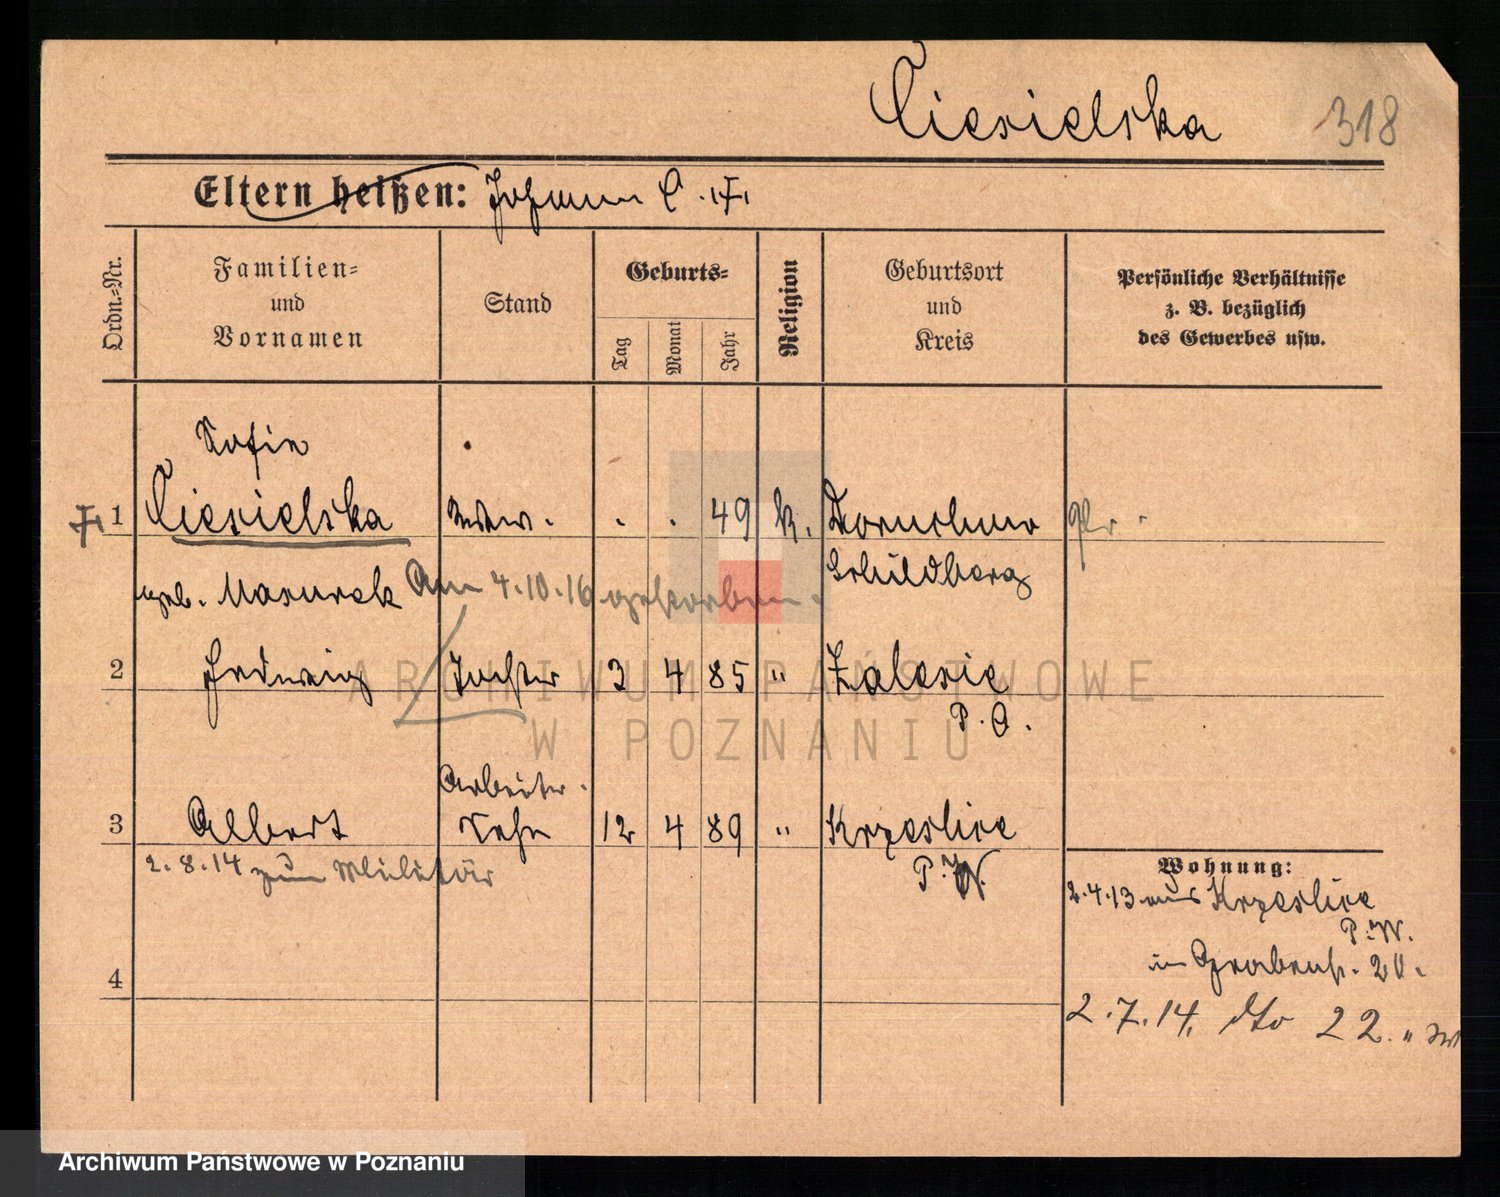 Ciesielska
318
Eltern heißen: Johann C.
Ordn.-Nr.
Familien=
und
Vornamen
Stand
Geburts=
Tag
Monat
Jahr
Religion
Geburtsort
und
Kreis
Persönliche Verhältnisse
z. B. bezüglich
des Gewerbes usw.
Sofie
1 Ciesielska Wtw. . . 49 k. Pr.
Schildberg
geb. Masurek Am 4.10.16 gestorben.
2 Hedwig Tochter 3 4 85 " Zalesie
P. O.
Arbeiter.
3 Albert Sohn 12 4 89 " Krzeslice
P. W.
2.8.14 zum Militär
4
Wohnung:
2.4.13 aus Krzeslice
P. W.
in Grabenstr. 20.
2.7.14. dto 22. "
ARCHIWUM PAŃSTWOWE
W POZNANIU
Archiwum Państwowe w Poznaniu